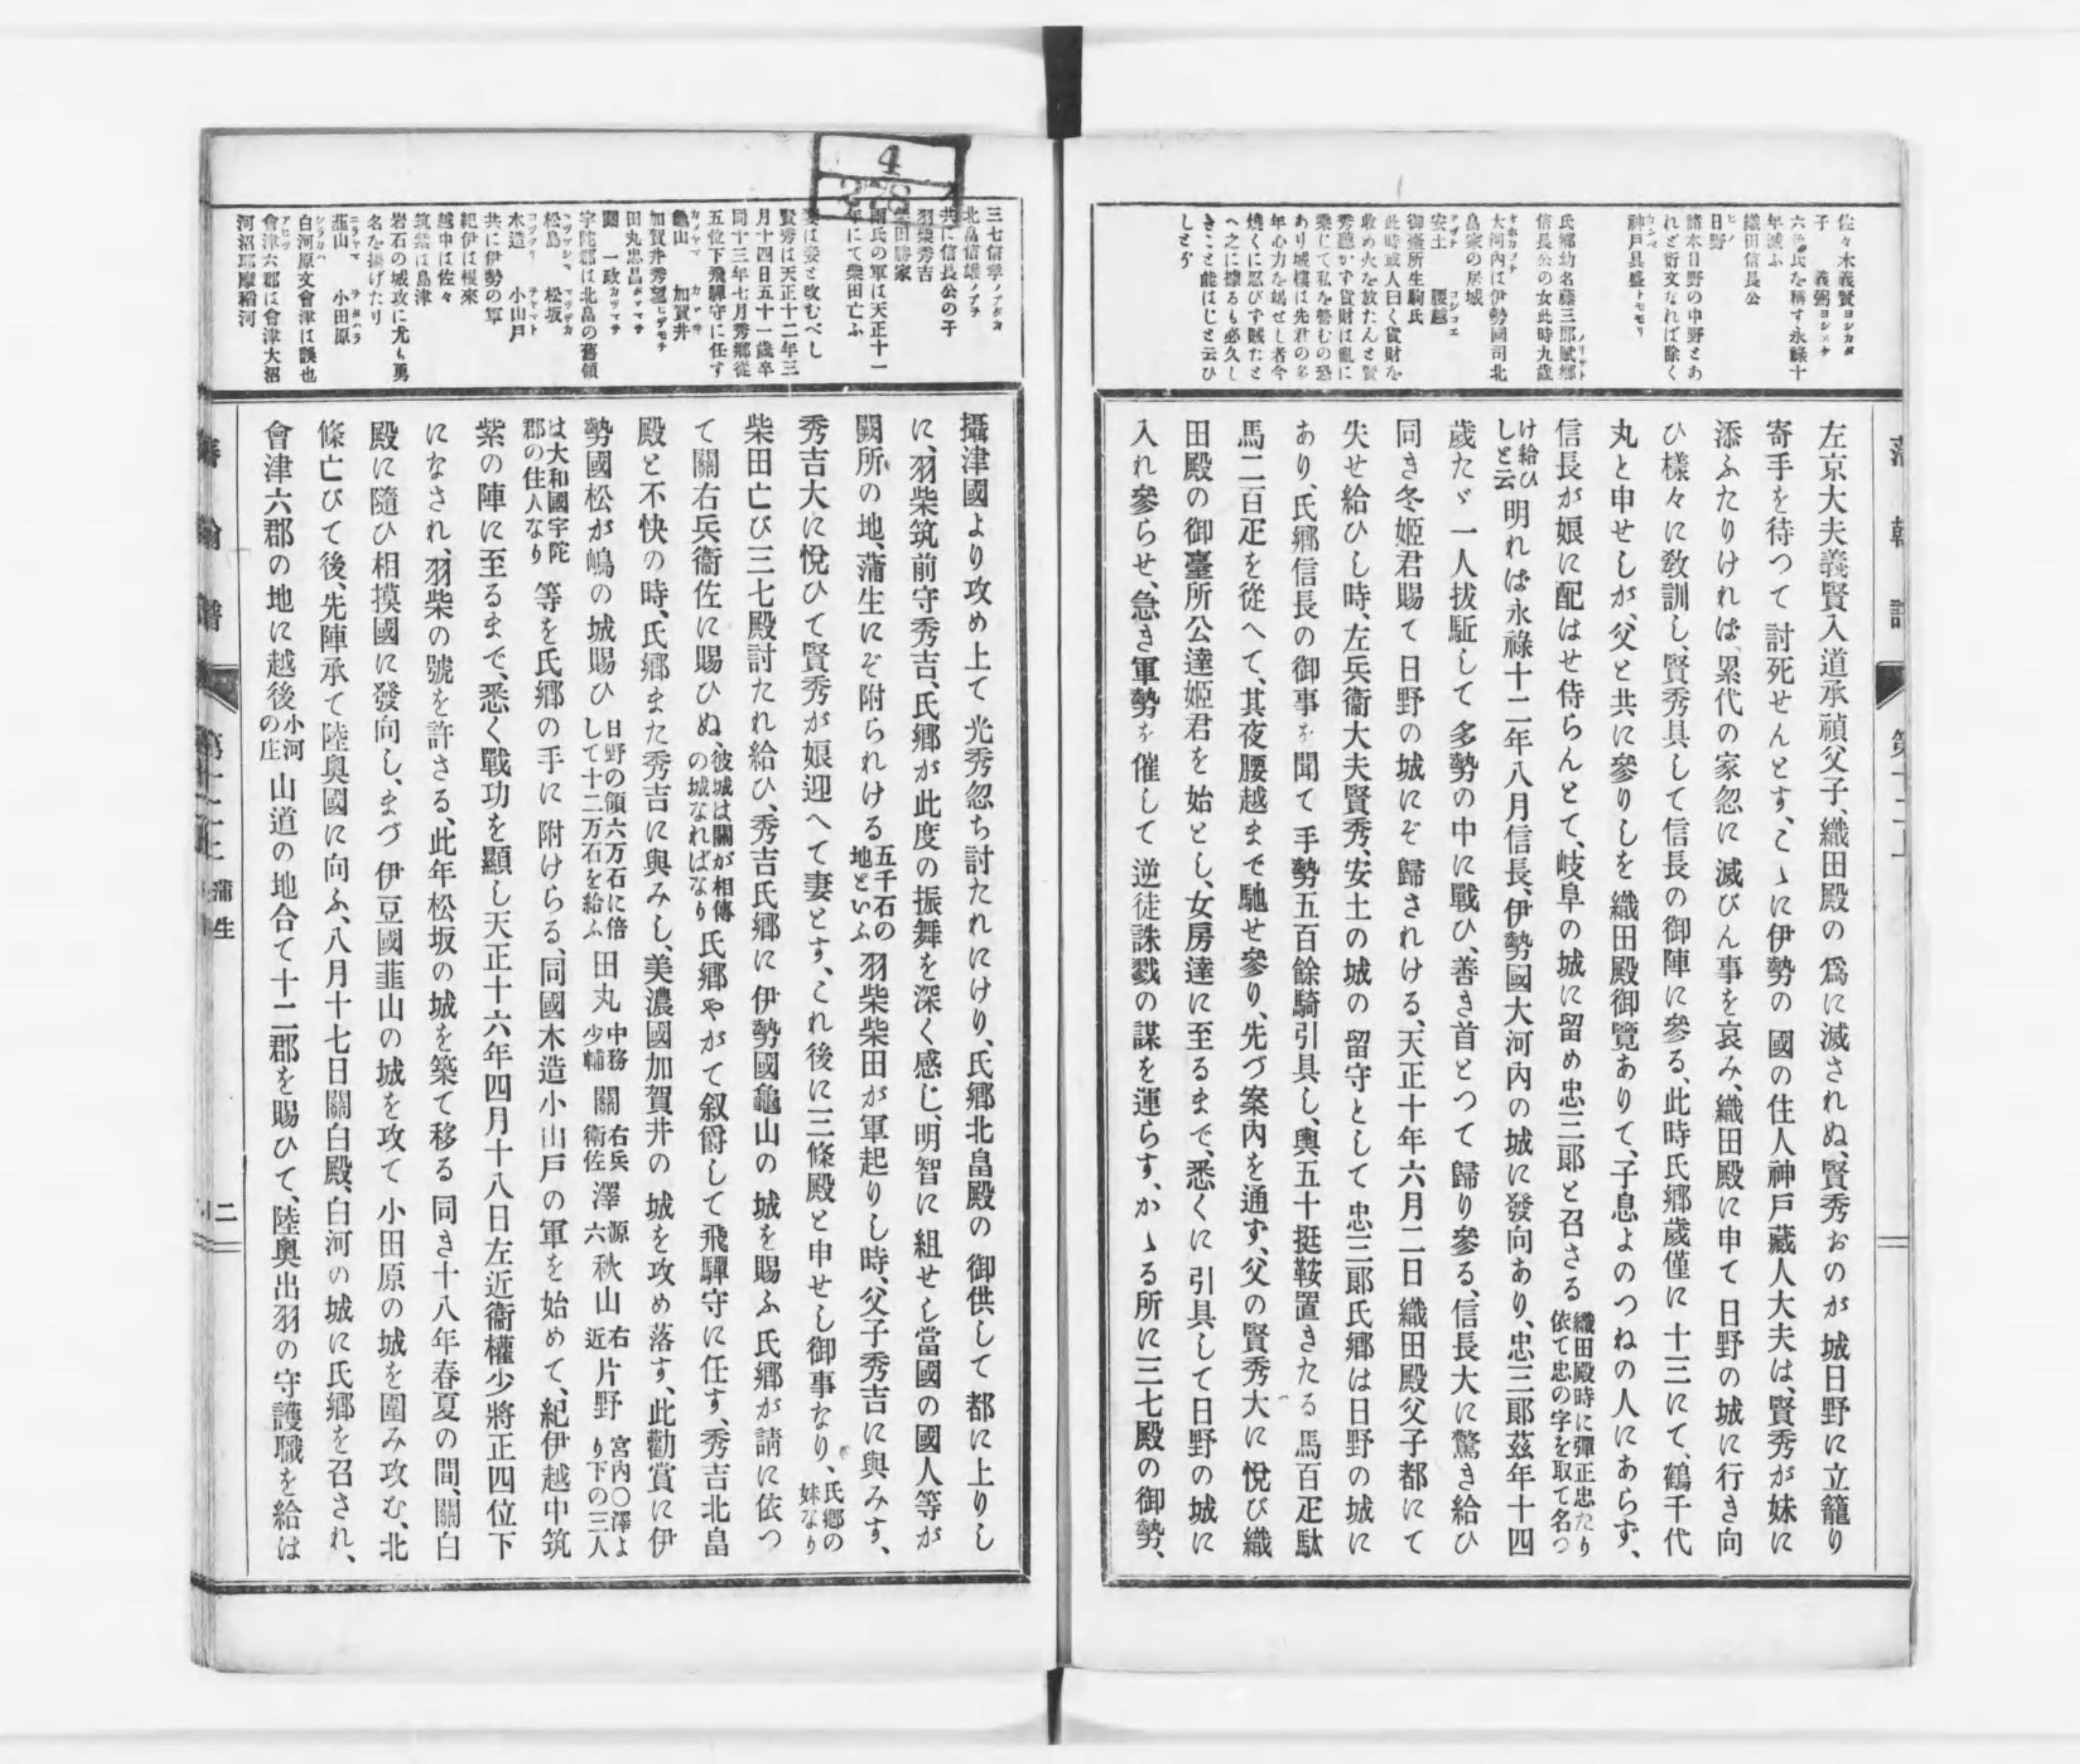 佐々木義賢ヨシカタ
子　義弼ヨシスケ
六角氏を稱す永祿十
年滅ふ
織田信長公
日野ヒノ
諸本日野の中野とあ
れど衍文なれば除く
神戸具盛トモモリ
氏鄕幼名藤三郞賦鄕
信長公の女此時九歲
大河內は伊勢國司北
畠家の居城
安土　腰越コシゴエ
御臺所生駒氏
此時或人曰く貨財を
收め火を放たんと賢
秀聽かず貨財は亂に
乘じて私を營むの恐
あり城樓は先君の多
年心力を竭せし者今
燒くに忍びず賊たと
へ之に據るも必久し
きこと能はじと云ひ
しとぞ
左京大夫義賢入道承禎父子、織田殿の爲に滅されぬ、賢秀おのが城日野に立籠り
寄手を待つて討死せんとす、こゝに伊勢の國の住人神戸藏人大夫は、賢秀が妹に
添ふたりければ、累代の家忽に滅びん事を哀み、織田殿に申て日野の城に行き向
ひ樣々に敎訓し、賢秀具して信長の御陣に參る、此時氏鄕歲僅に十三にて、鶴千代
丸と申せしが、父と共に參りしを織田殿御覽ありて、子息よのつねの人にあらず、
信長が娘に配はせ侍らんとて、岐阜の城に留め忠三郞と召さる織田殿時に彈正忠たり依て忠の字を取て名つ
け給ひしと云明れば永祿十二年八月信長、伊勢國大河內の城に發向あり、忠三郞茲年十四
歲たゞ一人拔駈して多勢の中に戰ひ、善き首とつて歸り參る、信長大に驚き給ひ
同き冬姬君賜て日野の城にぞ歸されける、天正十年六月二日織田殿父子都にて
失せ給ひし時、左兵衞大夫賢秀、安土の城の留守として忠三郞氏鄕は日野の城に
あり、氏鄕信長の御事を聞て手勢五百餘騎引具し、輿五十挺鞍置きたる馬百疋駄
馬二百疋を從へて、其夜腰越まで馳せ參り、先づ案內を通ず、父の賢秀大に悅び織
田殿の御臺所公達姬君を始とし、女房達に至るまで、悉くに引具して日野の城に
入れ參らせ、急き軍勢を催して逆徒誅戮の謀を運らす、かゝる所に三七殿の御勢、
4
278
三七信孝ノブタカ
北畠信雄ノブヲ
共に信長公の子
羽柴秀吉
柴田勝家
兩氏の軍は天正十一
年にて柴田亡ふ
妻は妾と改むべし
賢秀は天正十二年三
月十四日五十一歲卒
同十三年七月秀鄕從
五位下飛驒守に任す
龜山カメヤマ　加賀井カヾヰ
加賀井秀望ヒデモチ
田丸忠昌タヾマサ
關　一政カツマサ
宇陀郡は北畠の舊領
松島マツガシマ　松坂マツザカ
木造コツクリ　小山戸ヲヤマト
共に伊勢の軍
紀伊は根來
越中は佐々
筑紫は島津
岩石の城攻に尤も勇
名を揚げたり
韮山ニラヤマ　小田原ヲダハラ
白河原文會津は誤也
會津六郡は會津大沼
河沼耶摩稻河
攝津國より攻め上て光秀忽ち討たれにけり、氏鄕北畠殿の御供して都に上りし
に、羽柴筑前守秀吉、氏鄕が此度の振舞を深く感じ、明智に組せし當國の國人等が
闕所の地、蒲生にぞ附られける五千石の地といふ羽柴柴田が軍起りし時、父子秀吉に與みす、
秀吉大に悅ひて賢秀が娘迎へて妻とす、これ後に三條殿と申せし御事なり、氏鄕の妹なり
柴田亡び三七殿討たれ給ひ、秀吉氏鄕に伊勢國龜山の城を賜ふ氏鄕が請に依つ
て關右兵衞佐に賜ひぬ、彼城は關が相傳の城なればなり氏鄕やがて叙爵して飛驒守に任す、秀吉北畠
殿と不快の時、氏鄕また秀吉に與みし、美濃國加賀井の城を攻め落す、此勸賞に伊
勢國松が嶋の城賜ひ日野の領六万石に倍して十二万石を給ふ田丸中務少輔關右兵衞佐澤源六秋山右近片野宮內〇澤より下の三人
は大和國宇陀郡の住人なり等を氏鄕の手に附けらる、同國木造小山戸の軍を始めて、紀伊越中筑
紫の陣に至るまで、悉く戰功を顯し天正十六年四月十八日左近衞權少將正四位下
になされ、羽柴の號を許さる、此年松坂の城を築て移る同き十八年春夏の間、關白
殿に隨ひ相摸國に發向し、まづ伊豆國韮山の城を攻て小田原の城を圍み攻む、北
條亡びて後、先陣承て陸奧國に向ふ、八月十七日關白殿、白河の城に氏鄕を召され、
會津六郡の地に越後小河の庄山道の地合て十二郡を賜ひて、陸奧出羽の守護職を給は
藩翰譜　第十二上　蒲生　二